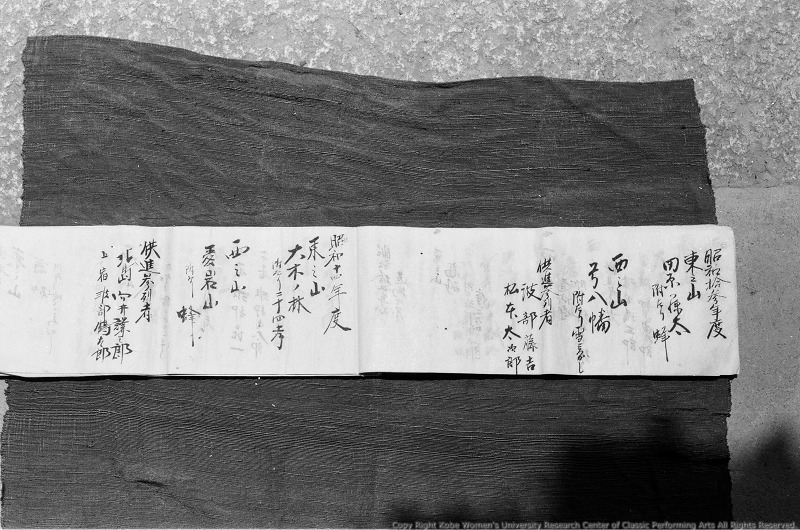 昭和拾参年度
東之山
附り 蜂
西之山
弓八幡
供進参列者
波部藤吉
松本太次郎
昭和十四年度
東之山
大木ノ林
附り二十四孝
西之山
愛岩山
附り 蜂
供進参列者
北島 向井
上宿 波部鶴太郎
Copy Right Kobe Women's University Research Center of Classic Performing Arts All Rights Reserved.